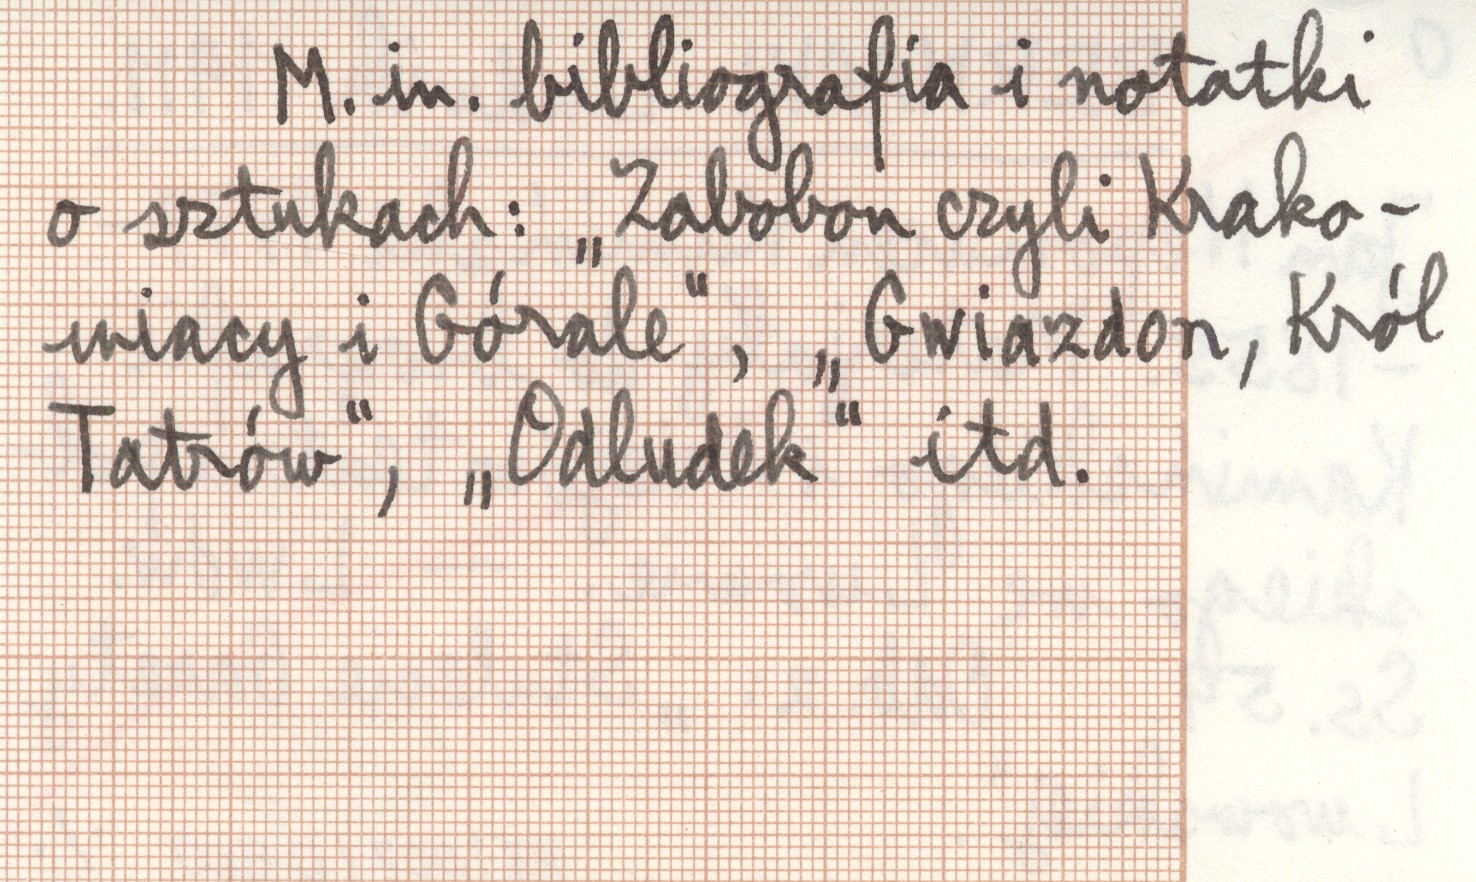 M. in. bibliografia i notatki
o sztukach: „Zabobon czyli Krako-
wiacy i Górale", „Gwiazdon, Król
Tatrów", „Odludek" itd.